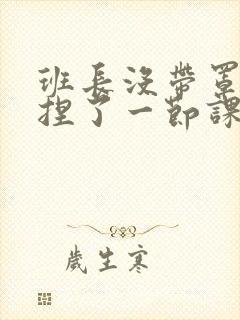 班長沒帶罩
捏了一節課
歲生寒